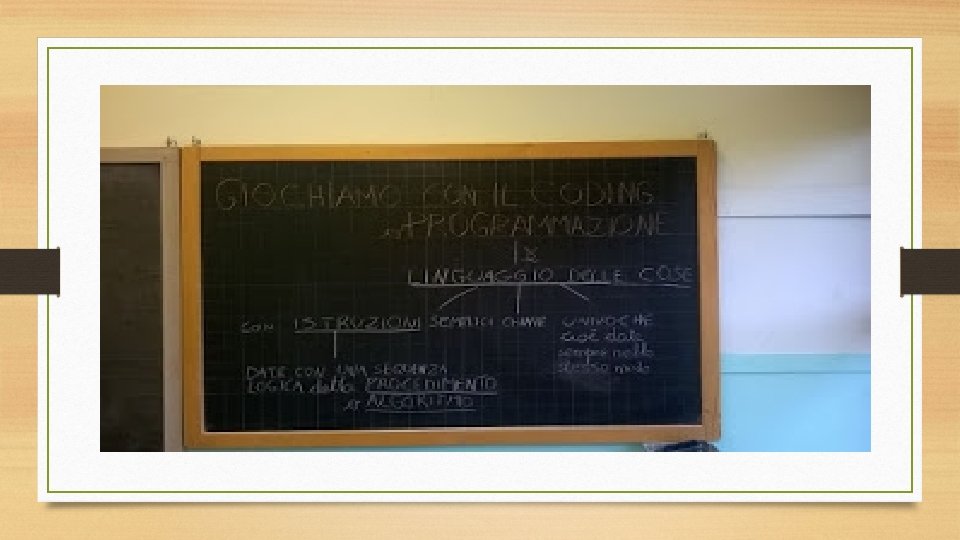 GIOCHIAMO CON IL CODING
o PROGRAMMAZIONE
è
LINGUAGGIO DELLE COSE
con ISTRUZIONI SEMPLICI CHIARE UNIVOCHE
cioè date
sempre nello
stesso modo
DATE CON UNA SEQUENZA
LOGICA detta PROCEDIMENTO
o ALGORITMO